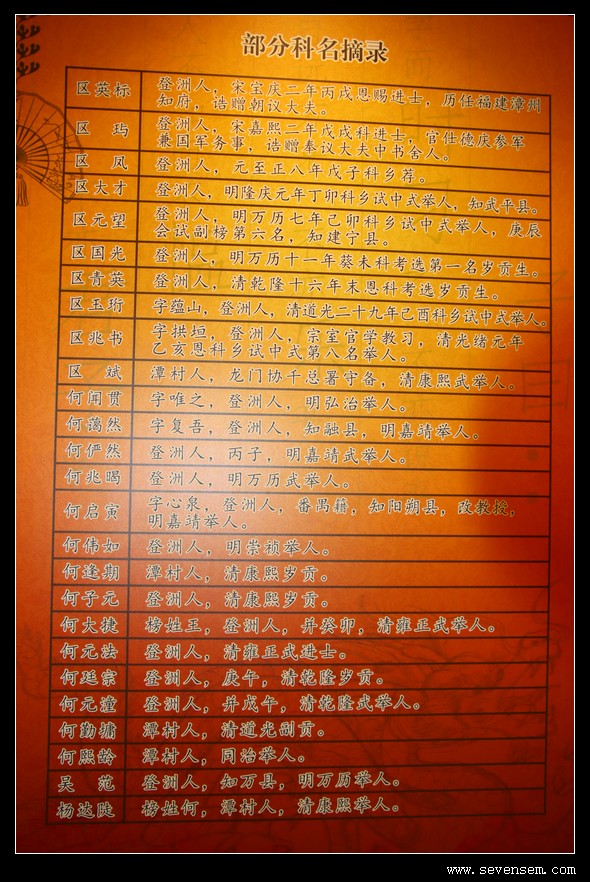 部分科名摘录
区英标 登洲人，宋宝庆二年丙戌恩赐进士，历任福建漳州
知府，诰赠朝议大夫。
区玙 登洲人，宋嘉熙二年戊戌科进士，官仕德庆参军
兼国军务事，诰赠奉议大夫中书舍人。
区凤 登洲人，元至正八年戊子科乡荐。
区大才 登洲人，明隆庆元年丁卯科乡试中式举人，知武平县。
区元望 登洲人，明万历七年己卯科乡试中式举人，庚辰
会试副榜第六名，知建宁县。
区国光 登洲人，明万历十一年葵未科考选第一名岁贡生。
区青英 登洲人，清乾隆十六年末恩科考选岁贡生。
区玉珩 字蕴山，登洲人，清道光二十九年己酉科乡试中式举人。
区兆书 字拱垣，登洲人，宗室官学教习，清光绪元年
乙亥恩科乡试中式第八名举人。
区斌 潭村人，龙门协千总署守备，清康熙武举人。
何闻贯 字唯之，登洲人，明弘治举人。
何蔼然 字复吾，登洲人，知融县，明嘉靖举人。
何俨然 登洲人，丙子，明嘉靖武举人。
何兆暍 登洲人，明万历武举人。
何启寅 字心泉，登洲人，番禺籍，知阳朔县，改教授，
明嘉靖举人。
何伟如 登洲人，明崇祯举人。
何逢期 潭村人，清康熙岁贡。
何子元 登洲人，清康熙岁贡。
何大捷 榜姓王，登洲人，并癸卯，清雍正武举人。
何元法 登洲人，清雍正武进士。
何廷宗 登洲人，庚午，清乾隆岁贡。
何元潼 登洲人，并戊午，清乾隆武举人。
何勤墉 潭村人，清道光副贡。
何熙龄 潭村人，同治举人。
吴范 登洲人，知万县，明万历举人。
杨达陡 榜姓何，潭村人，清康熙举人。
www.sevensem.com